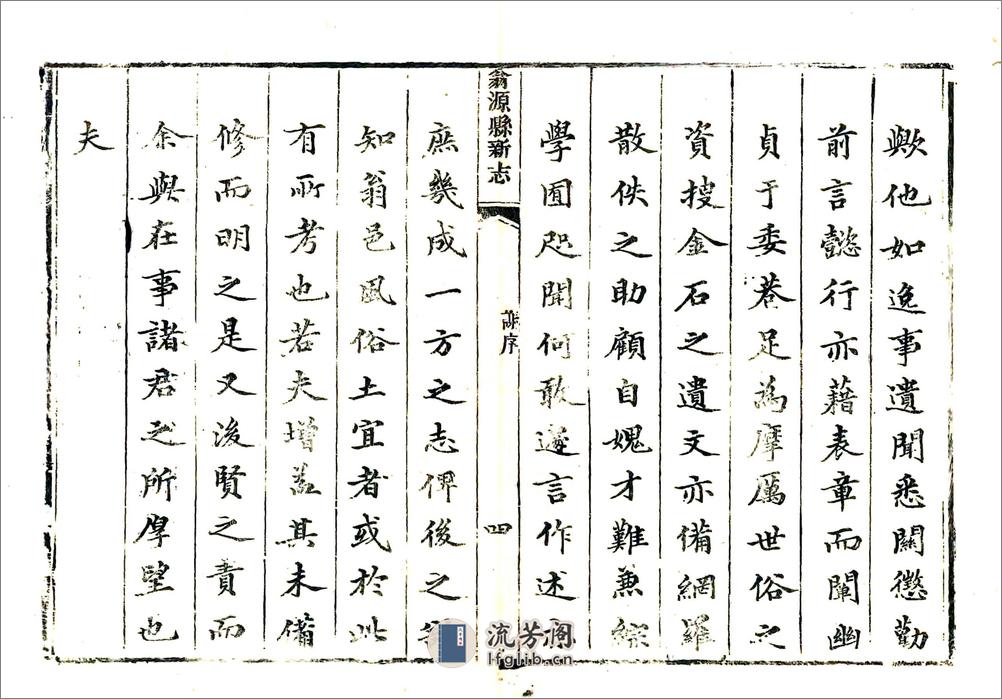 歟他如逸事遺聞悉關懲勸
前言懿行亦藉表章而闡幽
貞于委巷足為摩厲世俗之
資搜金石之遺文亦備網羅
散佚之助顧自媿才難兼綜
學囿咫聞何敢遽言作述
翁源縣新志
序
四
庶幾成一方之志俾後之
知翁邑風俗土宜者或於此
有所考也若夫增益其未備
修而明之是又後賢之責而
余與在事諸君之所厚望也
夫
流芳阁
lfglib.cn